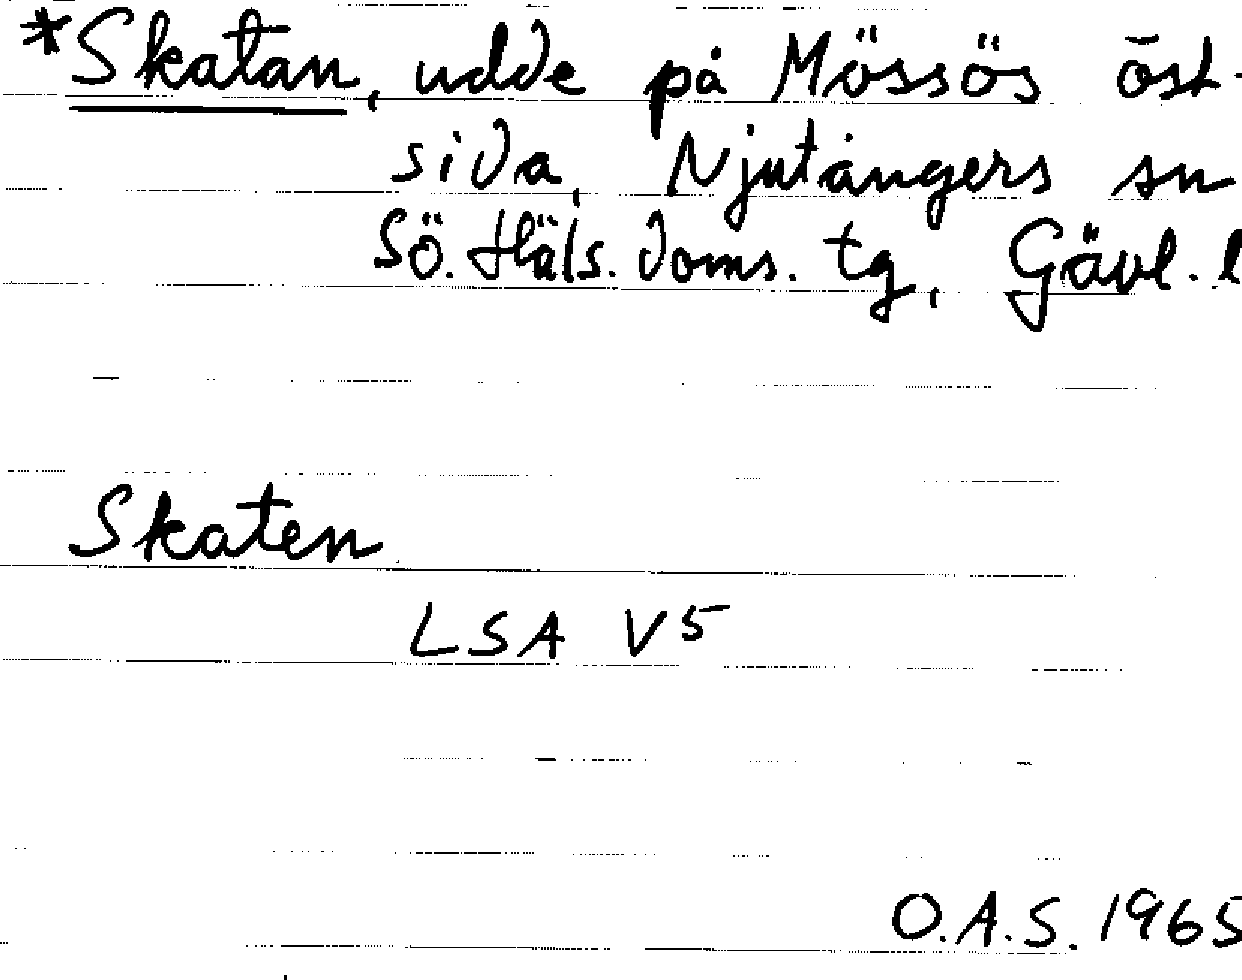 *Skatan, udde på Mössös öst-
sida, Njutångers sn
Sö. Häls. doms. tg, Gävl. l
Skaten
LSA V5
O.A.S. 1965